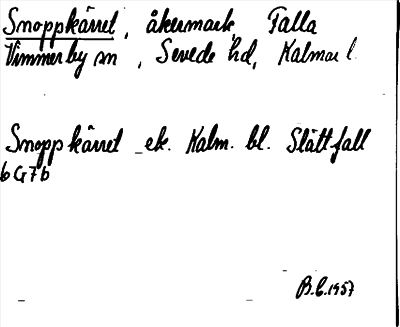 Snoppkärret, åkermark, Falla
Vimmerby sn, Sevede hd, Kalmar l.
Snoppkärret ek. Kalm. bl. Slättfall
6G7b
B.C. 1957